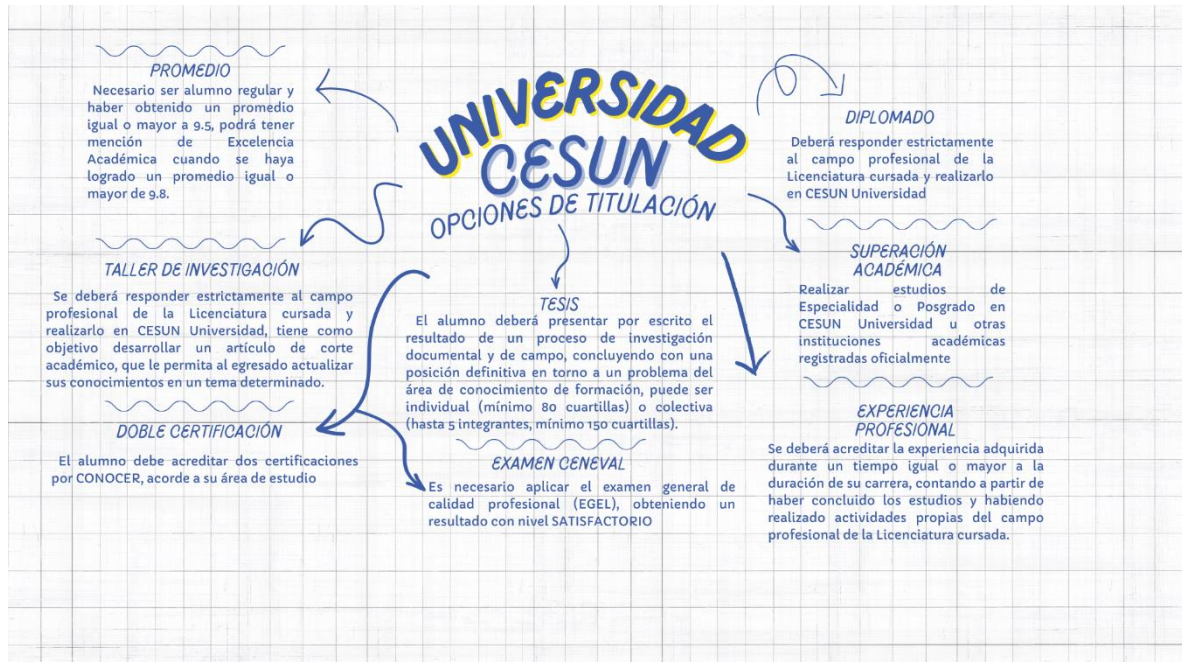 UNIVERSIDAD
CESUN
OPCIONES DE TITULACIÓN
PROMEDIO
Necesario ser alumno regular y
haber obtenido un promedio
igual o mayor a 9.5, podrá tener
mención de Excelencia
Académica cuando se haya
logrado un promedio igual o
mayor de 9.8.
TALLER DE INVESTIGACIÓN
Se deberá responder estrictamente al campo
profesional de la Licenciatura cursada y
realizarlo en CESUN Universidad, tiene como
objetivo desarrollar un artículo de corte
académico, que le permita al egresado actualizar
sus conocimientos en un tema determinado.
DOBLE CERTIFICACIÓN
El alumno debe acreditar dos certificaciones
por CONOCER, acorde a su área de estudio
TESIS
El alumno deberá presentar por escrito el
resultado de un proceso de investigación
documental y de campo, concluyendo con una
posición definitiva en torno a un problema del
área de conocimiento de formación, puede ser
individual (mínimo 80 cuartillas) o colectiva
(hasta 5 integrantes, mínimo 150 cuartillas).
EXAMEN CENEVAL
Es necesario aplicar el examen general de
calidad profesional (EGEL), obteniendo un
resultado con nivel SATISFACTORIO
DIPLOMADO
Deberá responder estrictamente
al campo profesional de la
Licenciatura cursada y realizarlo
en CESUN Universidad
SUPERACIÓN
ACADÉMICA
Realizar estudios de
Especialidad o Posgrado en
CESUN Universidad u otras
instituciones académicas
registradas oficialmente
EXPERIENCIA
PROFESIONAL
Se deberá acreditar la experiencia adquirida
durante un tiempo igual o mayor a la
duración de su carrera, contando a partir de
haber concluido los estudios y habiendo
realizado actividades propias del campo
profesional de la Licenciatura cursada.